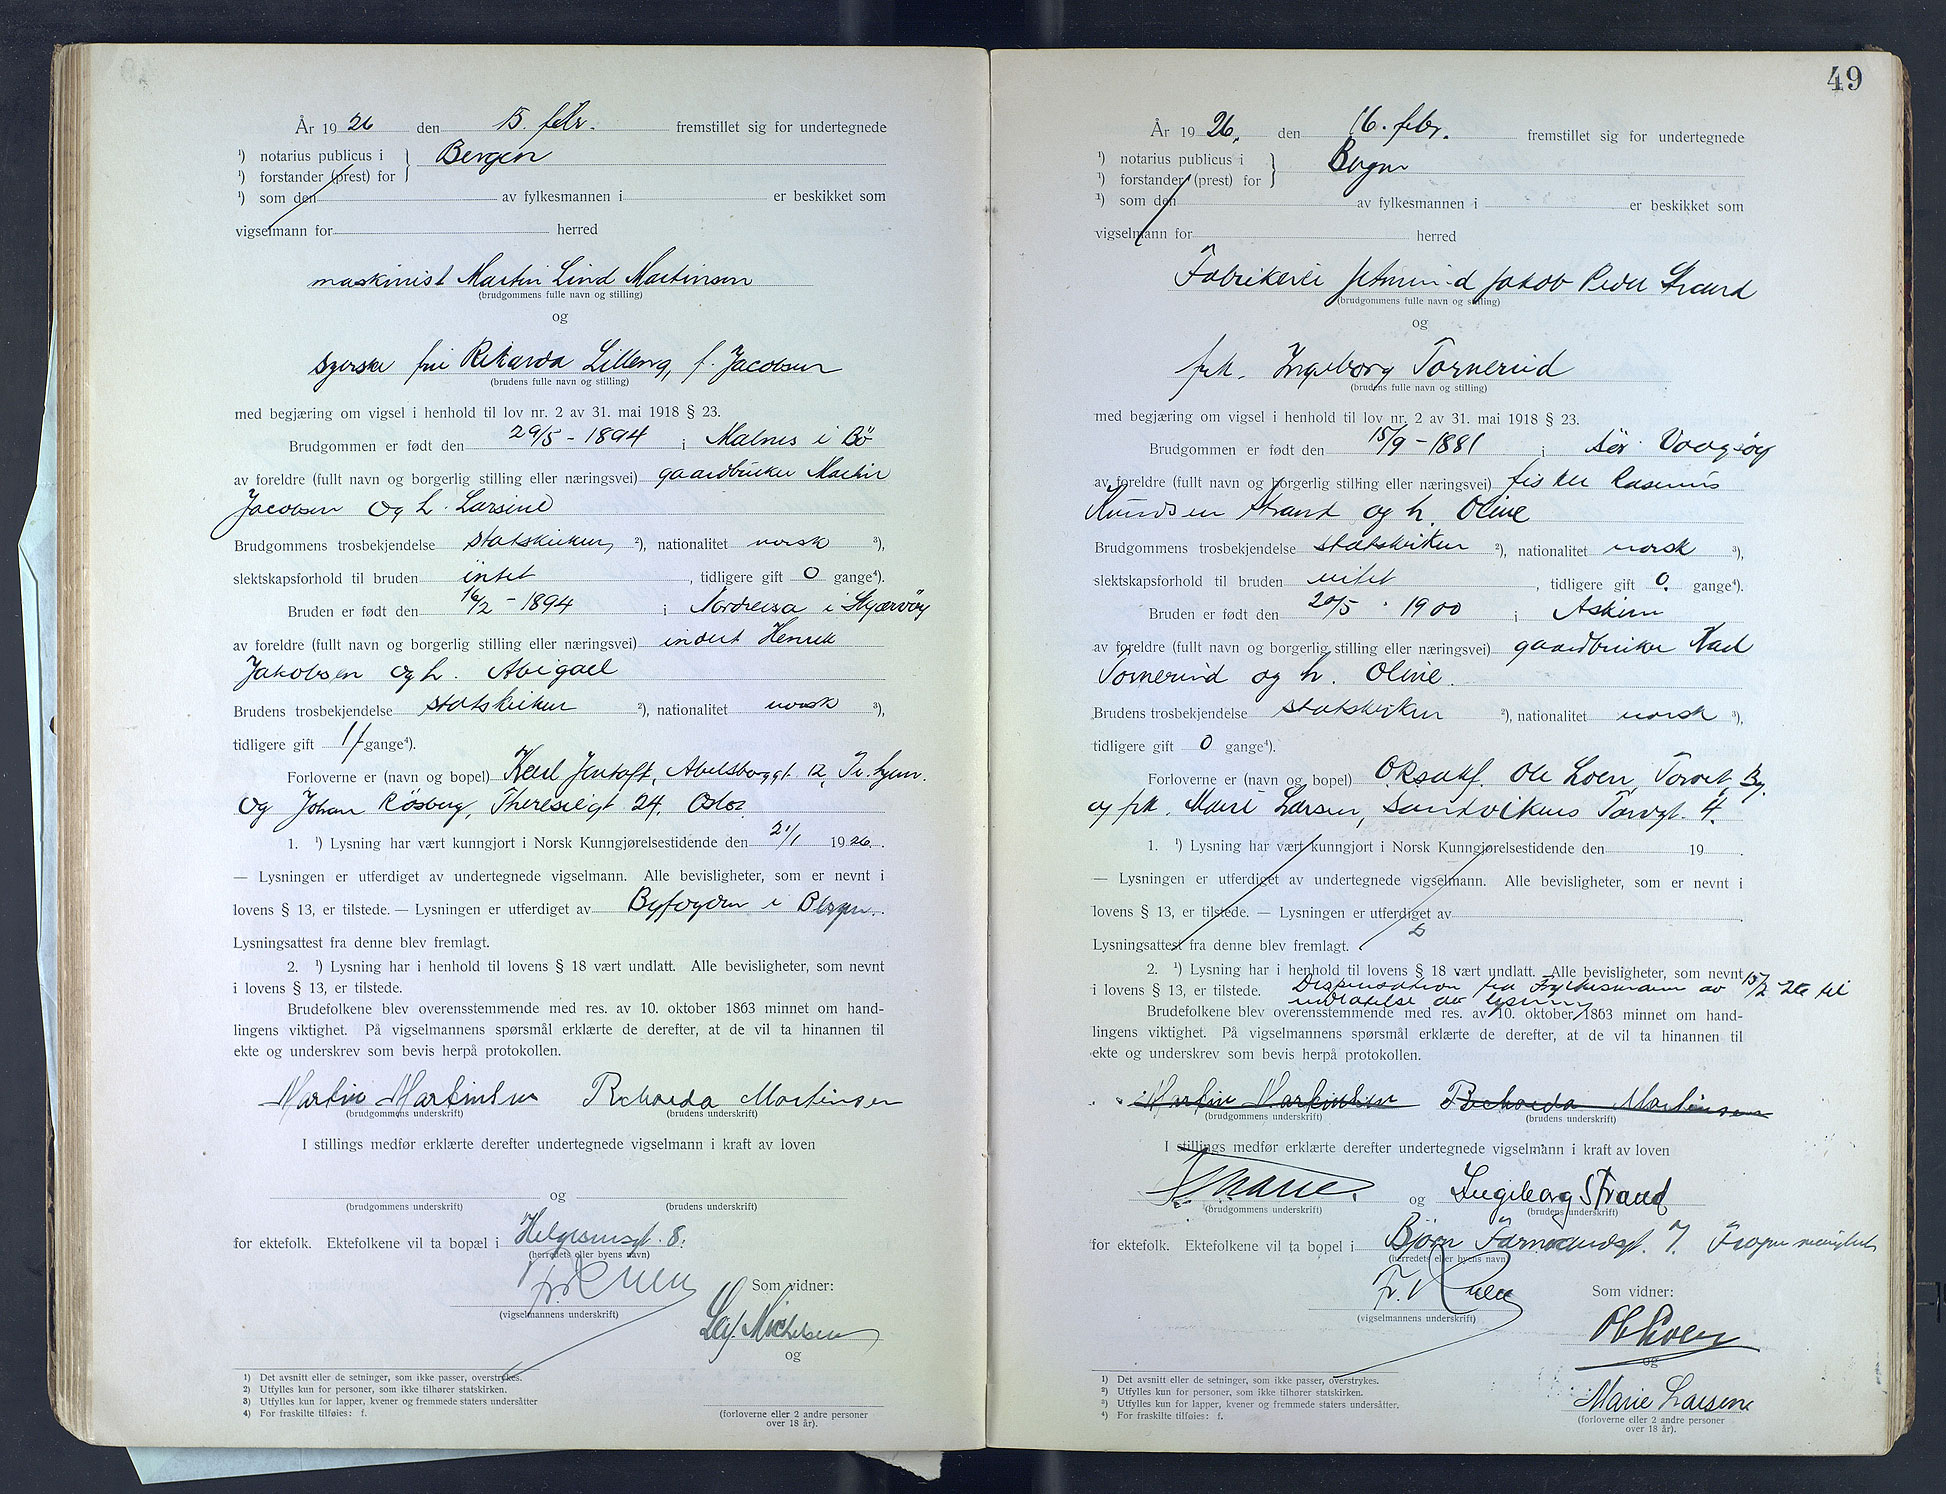 År 1926 den 15. febr. fremstillet sig for undertegnede
¹) notarius publicus i } Bergen
¹) forstander (prest) for
¹) som den av fylkesmannen i er beskikket som
vigselmann for herred
maskinist Martin Lind Martinsen
(brudgommens fulle navn og stilling)
og
syerske fru Rikarda Lilleng, f. Jacobsen
(brudens fulle navn og stilling)
med begjæring om vigsel i henhold til lov nr. 2 av 31. mai 1918 § 23.
Brudgommen er født den 29/5 - 1894 i Malnes i Bö
av foreldre (fullt navn og borgerlig stilling eller næringsvei) gaardbruker Martin
Jacobsen og h. Larsine
Brudgommens trosbekjendelse statskirken, ²), nationalitet norsk ³),
slektskapsforhold til bruden intet, tidligere gift 0 gange⁴).
Bruden er født den 16/2 - 1894 i Nordreisa i Skjærvöy
av foreldre (fullt navn og borgerlig stilling eller næringsvei) inderst Henrik
Jakobsen og h. Abigael
Brudens trosbekjendelse statskirken ²), nationalitet norsk ³),
tidligere gift 1 f gange⁴).
Forloverne er (navn og bopel) Karl Jentoft, Abelsborggt. 12, Tr.hjem.
og Johan Rösberg, Theresiegt 24. Oslo.
1. ¹) Lysning har vært kunngjort i Norsk Kunngjørelsestidende den 21/1 1926.
— Lysningen er utferdiget av undertegnede vigselmann. Alle bevisligheter, som er nevnt i
lovens § 13, er tilstede. — Lysningen er utferdiget av Byfogden i Bergen.
Lysningsattest fra denne blev fremlagt.
2. ¹) Lysning har i henhold til lovens § 18 vært undlatt. Alle bevisligheter, som nevnt
i lovens § 13, er tilstede.
Brudefolkene blev overensstemmende med res. av 10. oktober 1863 minnet om hand-
lingens viktighet. På vigselmannens spørsmål erklærte de derefter, at de vil ta hinannen til
ekte og underskrev som bevis herpå protokollen.
Martin Martinsen Richarda Martinsen
(brudgommens underskrift) (brudens underskrift)
I stillings medfør erklærte derefter undertegnede vigselmann i kraft av loven
og
(brudgommens underskrift) (brudens underskrift)
for ektefolk. Ektefolkene vil ta bopæl i Helgesensgt. 8.
(herredets eller byens navn)
Som vidner:
(vigselmannens underskrift)
Leif Michelsen
og
1) Det avsnitt eller de setninger, som ikke passer, overstrykes.
2) Utfylles kun for personer, som ikke tilhører statskirken.
3) Utfylles kun for lapper, kvener og fremmede staters undersåtter
4) For fraskilte tilføies: f.
(forloverne eller 2 andre personer
over 18 år).
49
År 1926, den 16. febr. fremstillet sig for undertegnede
¹) notarius publicus i } Bergen
¹) forstander (prest) for
¹) som den av fylkesmannen i er beskikket som
vigselmann for herred
Jakob Peder Strand
(brudgommens fulle navn og stilling)
og
frk. Ingeborg Tornerud
(brudens fulle navn og stilling)
med begjæring om vigsel i henhold til lov nr. 2 av 31. mai 1918 § 23.
Brudgommen er født den 15/9 - 1881 i Sör Vaagsöy
av foreldre (fullt navn og borgerlig stilling eller næringsvei) fisker Rasmus
Knudsen Strand og h. Oline
Brudgommens trosbekjendelse statskirken ²), nationalitet norsk ³),
slektskapsforhold til bruden intet, tidligere gift 0. gange⁴).
Bruden er født den 20/5 - 1900 i Askim
av foreldre (fullt navn og borgerlig stilling eller næringsvei) gaardbruker Karl
Tornerud og h. Oline.
Brudens trosbekjendelse statskirken ²), nationalitet norsk ³),
tidligere gift 0 gange⁴).
Forloverne er (navn og bopel) O.R.sakf. Ole Loen, Torvet, By.
og frk. Marie Larsen, Sandvikens Torvgt. 4.
1. ¹) Lysning har vært kunngjort i Norsk Kunngjørelsestidende den 19
— Lysningen er utferdiget av undertegnede vigselmann. Alle bevisligheter, som er nevnt i
lovens § 13, er tilstede. — Lysningen er utferdiget av
Lysningsattest fra denne blev fremlagt.
2. ¹) Lysning har i henhold til lovens § 18 vært undlatt. Alle bevisligheter, som nevnt
i lovens § 13, er tilstede. Dispensation fra Fylkesmann av 15/2 26 til
undlatelse av lysning
Brudefolkene blev overensstemmende med res. av 10. oktober 1863 minnet om hand-
lingens viktighet. På vigselmannens spørsmål erklærte de derefter, at de vil ta hinannen til
ekte og underskrev som bevis herpå protokollen.
Martin Martinsen Richarda Martinsen
(brudgommens underskrift) (brudens underskrift)
I stillings medfør erklærte derefter undertegnede vigselmann i kraft av loven
og Ingeborg Strand
(brudgommens underskrift) (brudens underskrift)
for ektefolk. Ektefolkene vil ta bopel i Bjørn Farmandsgt. 7. Frogner menighet
(herredets eller byens navn)
Som vidner:
(vigselmannens underskrift)
Ole Loen
og
Marie Larsen
1) Det avsnitt eller de setninger, som ikke passer, overstrykes.
²) Utfylles kun for personer, som ikke tilhører statskirken.
³) Utfylles kun for lapper, kvener og fremmede staters undersåtter.
⁴) For fraskilte tilføies: f.
(forloverne eller 2 andre personer
over 18 år).